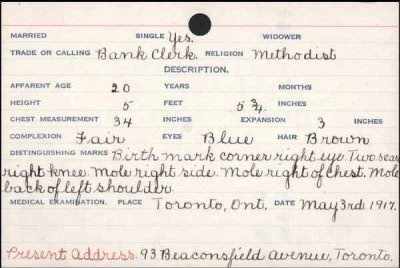 MARRIED SINGLE Yes. WIDOWER
TRADE OR CALLING Bank Clerk. RELIGION Methodist
DESCRIPTION.
APPARENT AGE 20 YEARS MONTHS
HEIGHT 5 FEET 5 3/4. INCHES
CHEST MEASUREMENT 34 INCHES EXPANSION 3 INCHES
COMPLEXION Fair EYES Blue HAIR Brown
DISTINGUISHING MARKS Birth mark corner right eye. Two scars
right knee. Mole right side. Mole right of chest. Mole
back of left shoulder
MEDICAL EXAMINATION. PLACE Toronto, Ont. DATE May 3rd 1917.
Present Address. 93 Beaconsfield Avenue, Toronto.